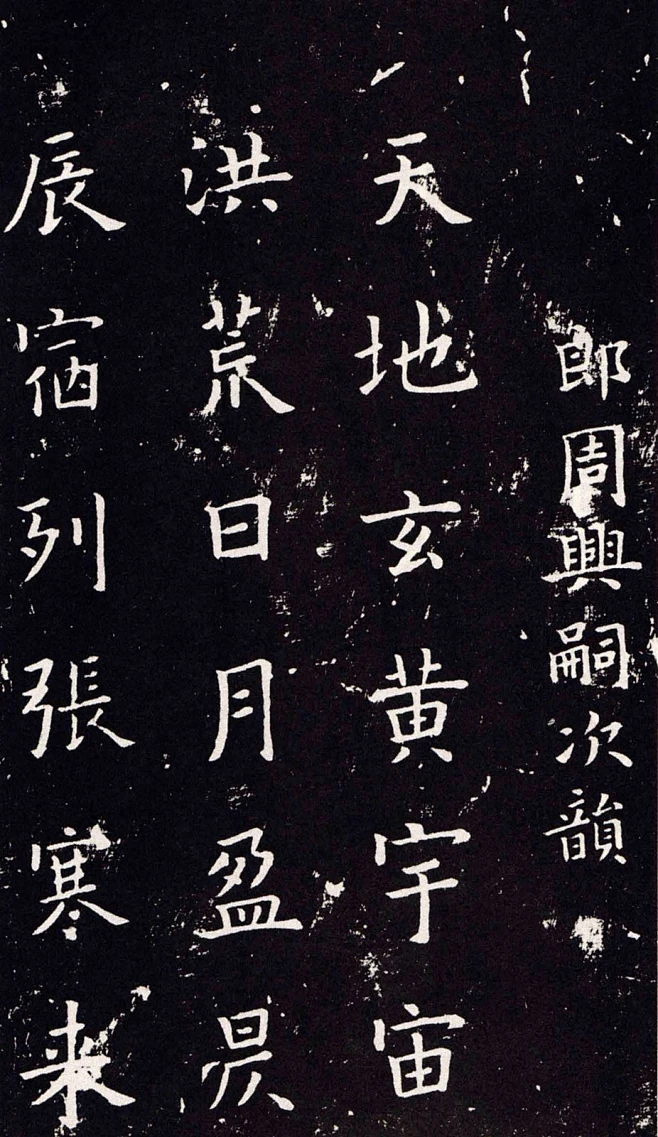 郎周興嗣次韻
天地玄黃宇宙
洪荒日月盈昃
辰宿列張寒来